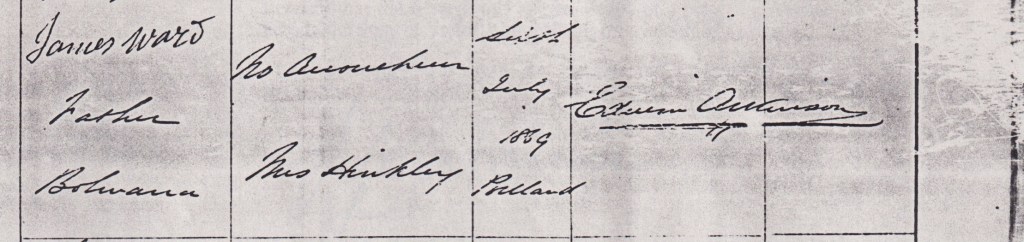 James Ward
Father
Bolwarra
No Accoucheur
Mrs Hinkley
Sixth
July
1869
Portland
Edwin Atkinson